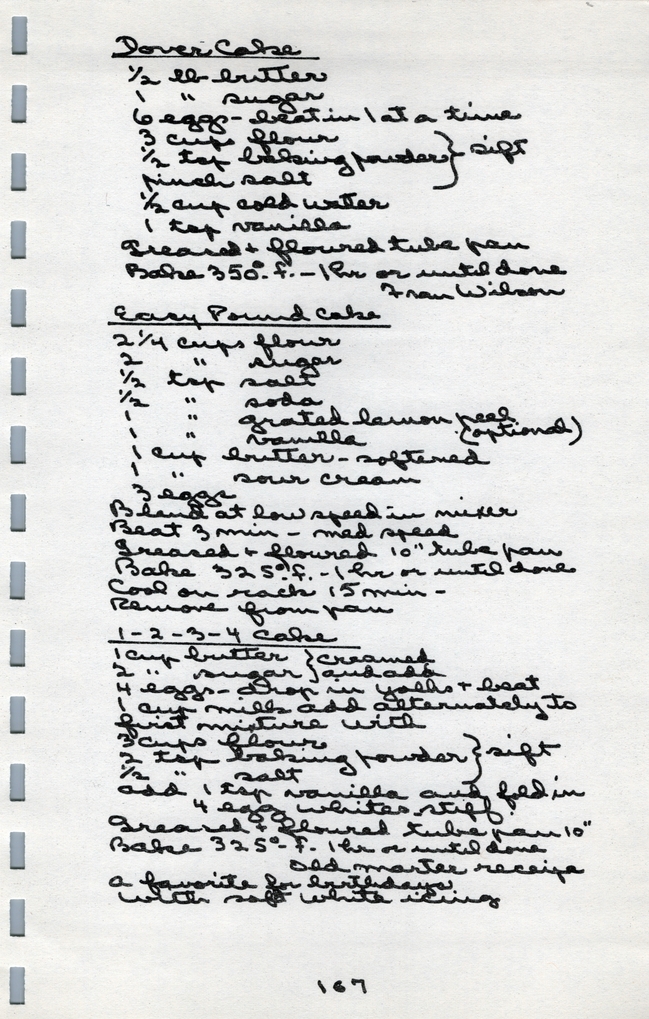 Dover Cake
1/2 lb butter
1 " sugar
6 eggs - beat in 1 at a time
3 cups flour
1/2 tsp baking powder } sift
pinch salt
1/2 cup cold water
1 tsp vanilla
Greased + floured tube pan
Bake 350°. f. - 1 hr or until done
Fran Wilson
Easy Pound Cake
2 1/4 cups flour
2 " sugar
1/2 tsp salt
1/2 " soda
1 " grated lemon peel
1 " vanilla (optional)
1 cup butter - softened
1 " sour cream
3 eggs
Blend at low speed in mixer
Beat 3 min - med speed
Greased + floured 10" tube pan
Bake 325° f. - 1 hr or until done
Cool on rack 15 min -
Remove from pan
1-2-3-4 Cake
1 cup butter } creamed
2 " sugar } and add
4 eggs - drop in yolks + beat
1 cup milk add alternately to
first mixture with
3 cups flour
2 tsp baking powder } sift
1/2 " salt
add 1 tsp vanilla and fold in
4 egg whites stiff.
Greased + floured tube pan 10"
Bake 325° f. 1 hr or until done
old marter receipe
a favorite for birthdays
with soft white icing
167